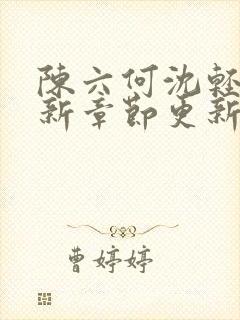 陳六何沈輕
新章節更新
曹婷婷